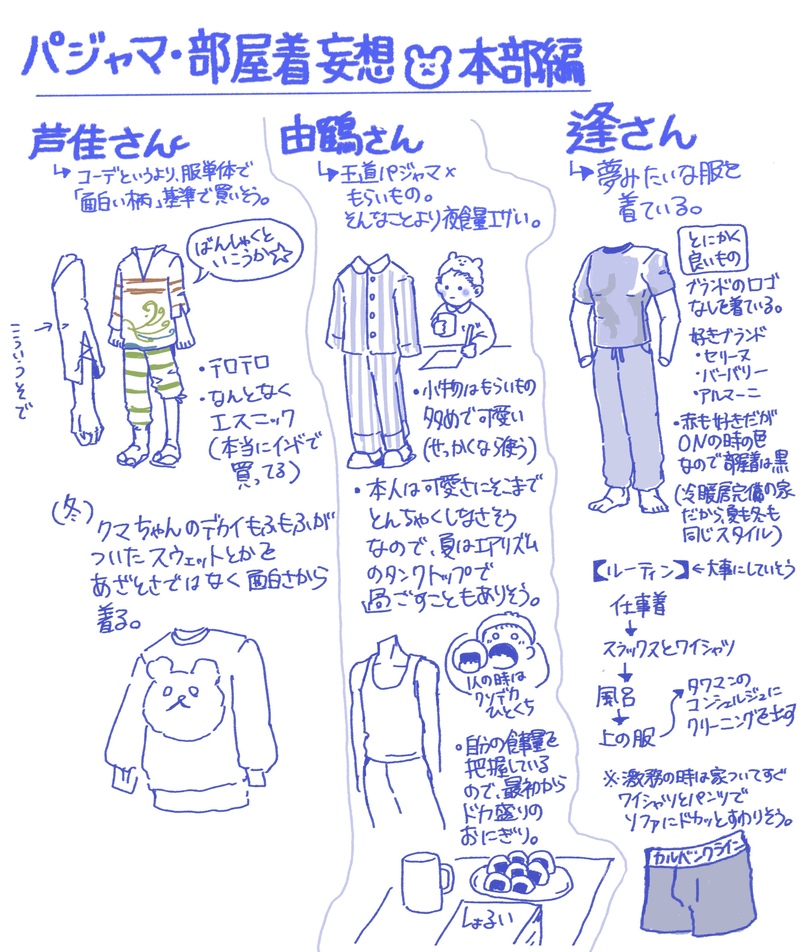 パジャマ・部屋着妄想 本部編
芦佳さん
↳コーデというより、服単体で
「面白い柄」基準で買いそう。
ばんしゃくと
いこうか☆
こういうそで
・テロテロ
・なんとなく
エスニック
(本当にインドで
買ってる)
(冬)
クマちゃんのデカイもふもふが
ついたスウェットとかを
あざとさではなく面白さから
着る。
由鶴さん
↳王道パジャマ×
もらいもの。
そんなことより夜食量エグい。
・小物はもらいもの
多めで可愛い
(せっかくなら使う)
・本人は可愛さにそこまで
とんちゃくしなさそう
なので、夏はエアリズム
のタンクトップで
過ごすこともありそう。
1人の時は
クソデカ
ひとくち
・自分の食事量を
把握している
ので、最初から
ドカ盛りの
おにぎり。
しょるい
逢さん
↳夢みたいな服を
着ている。
とにかく
良いもの
ブランドのロゴ
なしを着ている。
好きブランド
・セリーヌ
・バーバリー
・アルマーニ
・赤も好きだが
ONの時の色
なので部屋着は黒
(冷暖房完備の家
だから、夏も冬も
同じスタイル)
【ルーティン】←大事にしていそう
仕事着
↓
スラックスとワイシャツ
↓
風呂
↓
上の服
→タワマンの
コンシェルジュに
クリーニングを出す
※激務の時は家ついてすぐ
ワイシャツとパンツで
ソファにドカッとすわりそう。
カルバンクライン